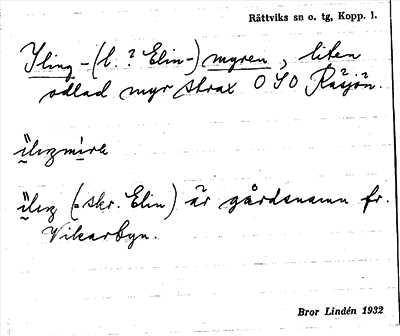 Rättviks sn o. tg, Kopp. l.
Yling - (l. ? Elin-) myren, liten
odlad myr strax O SO Råsjön.
(= skr. Elin) är gårdsnamn fr.
Vikarbyn.
Bror Lindén 1932